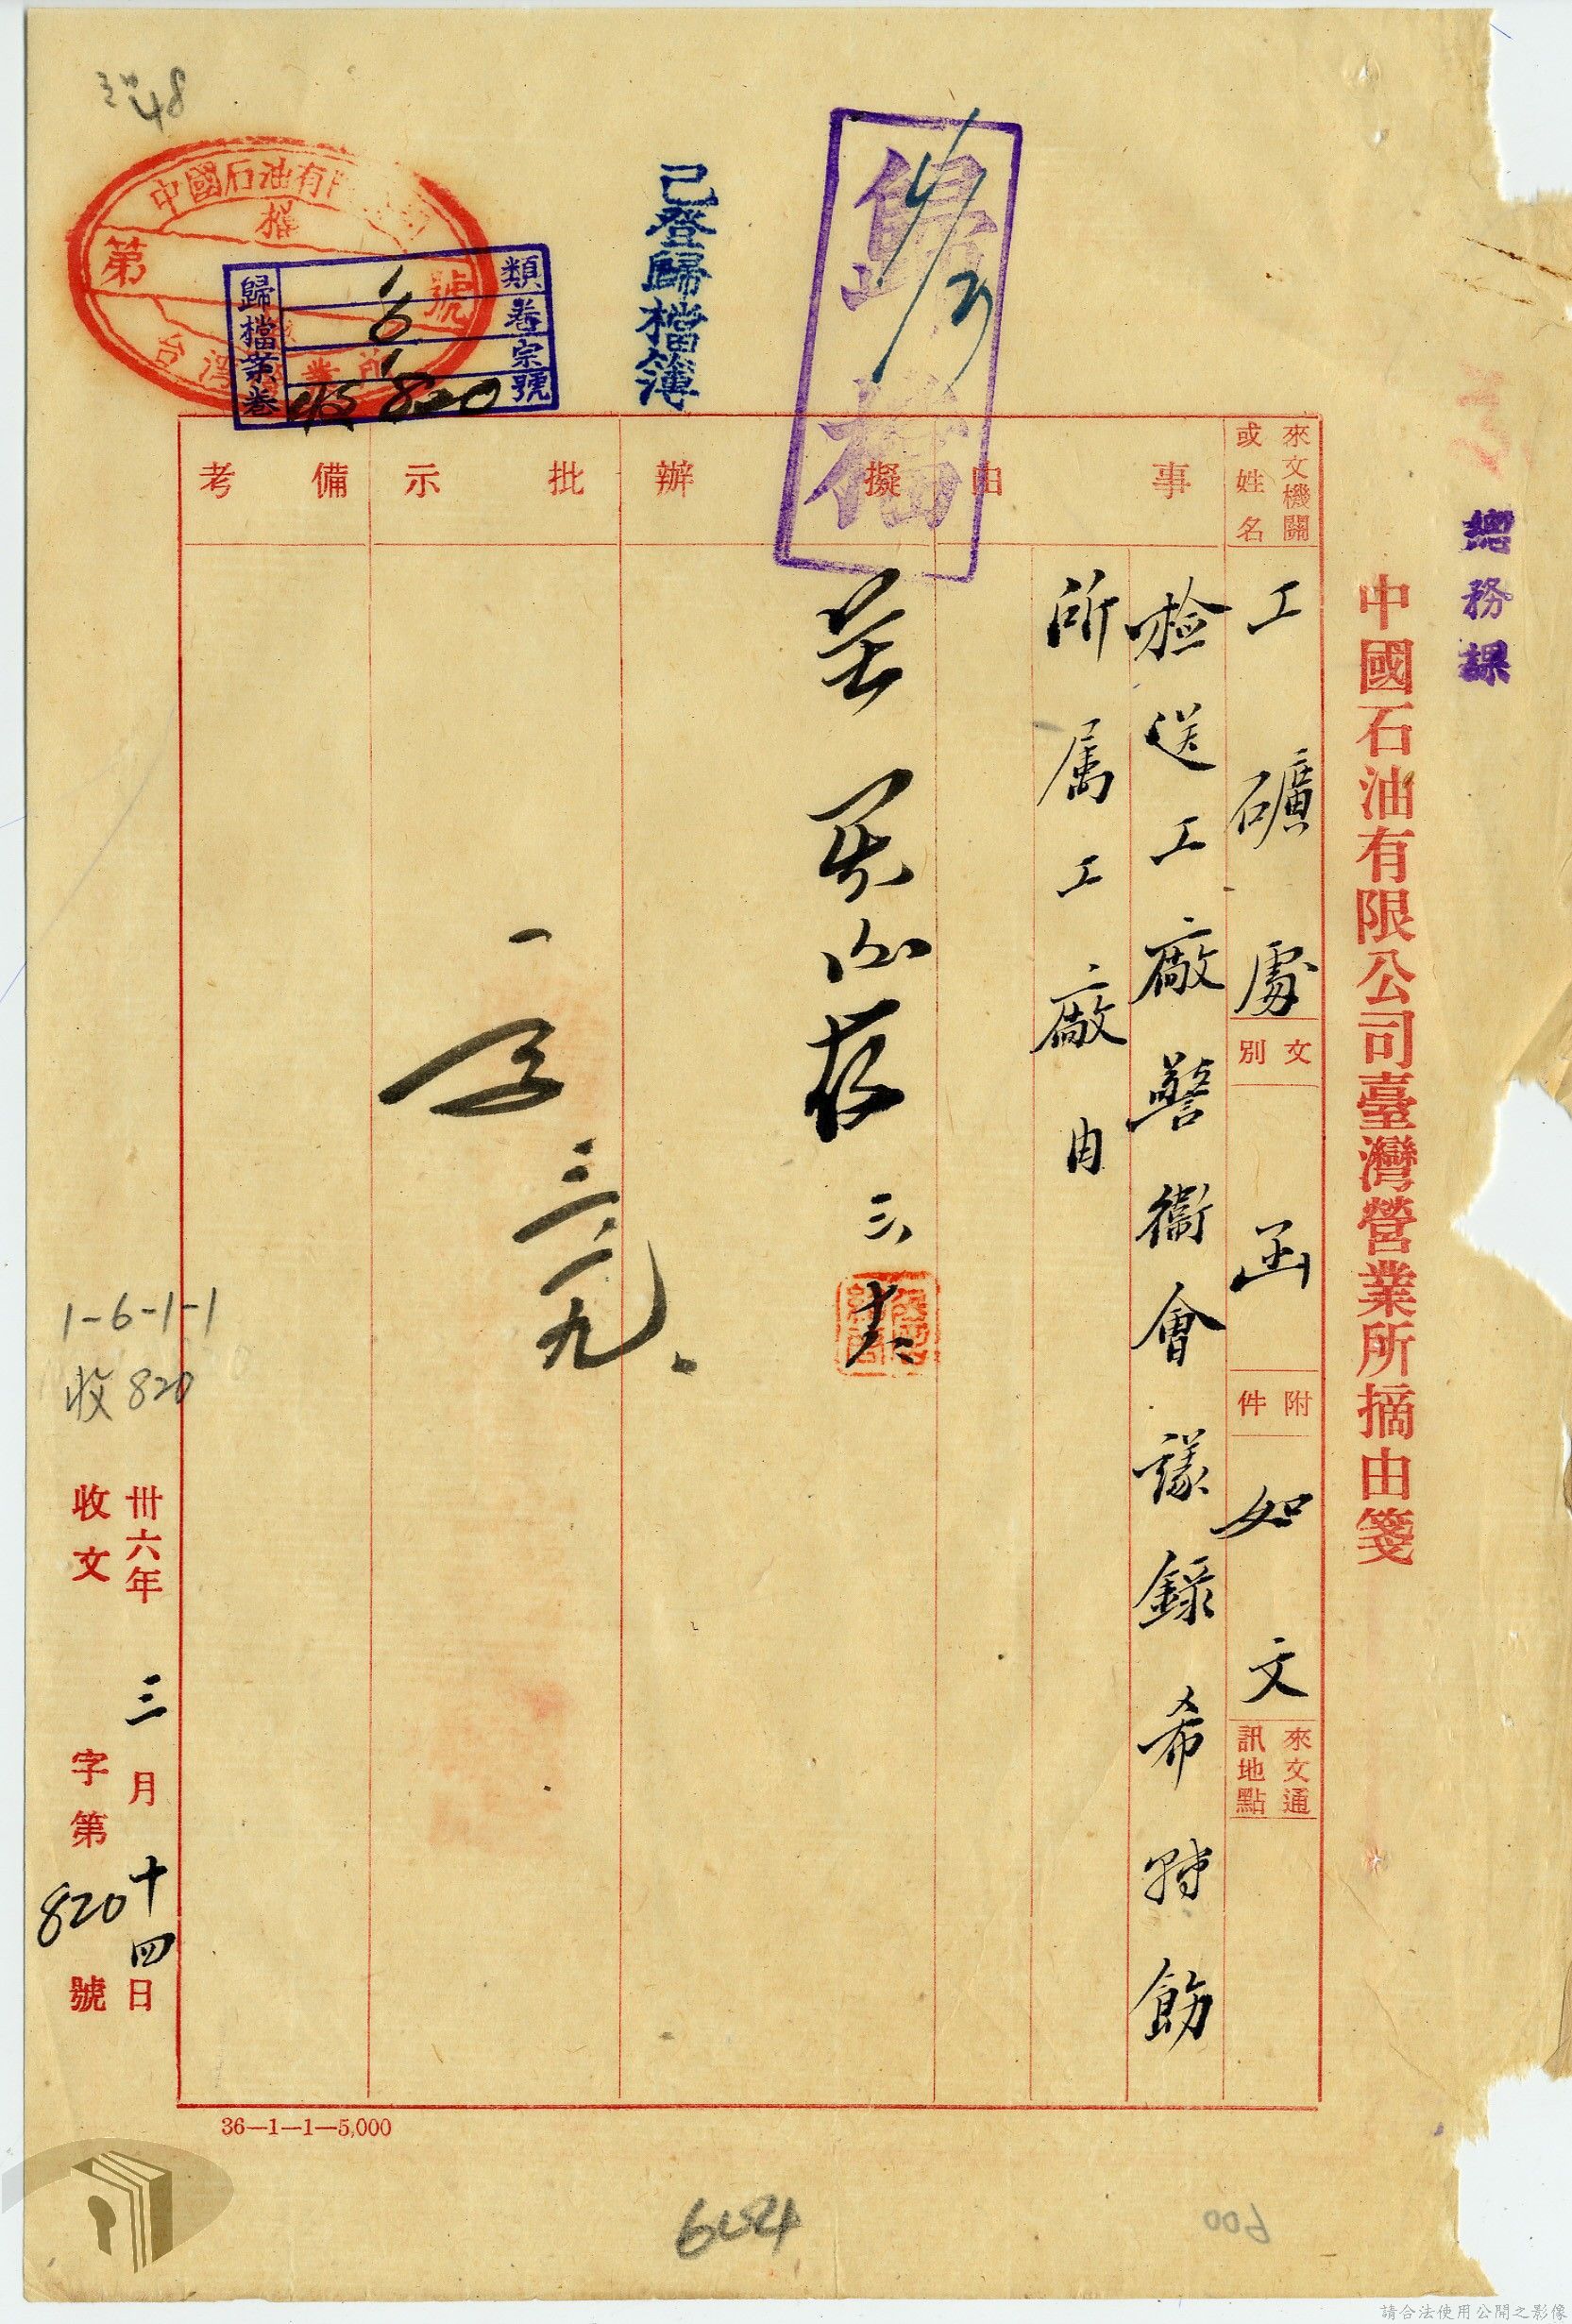 總務課
中國石油有限公司臺灣營業所摘由箋
來文機關或姓名
工礦處
文別
函
附件
如文
來文通訊地點
事由
檢送工廠警衛會議錄希轉飭
所屬工廠由
擬辦
存
三、
批示
一
三、
九
備考
歸檔
已登歸檔簿
中國石油有
檔
第
號
台灣營業所
類
卷
宗
號
1
6
1
收820
歸檔案卷
48
1-6-1-1
收820
卅六年三月十四日
收文字第820號
36—1—1—5,000
600
請合法使用公開之影像